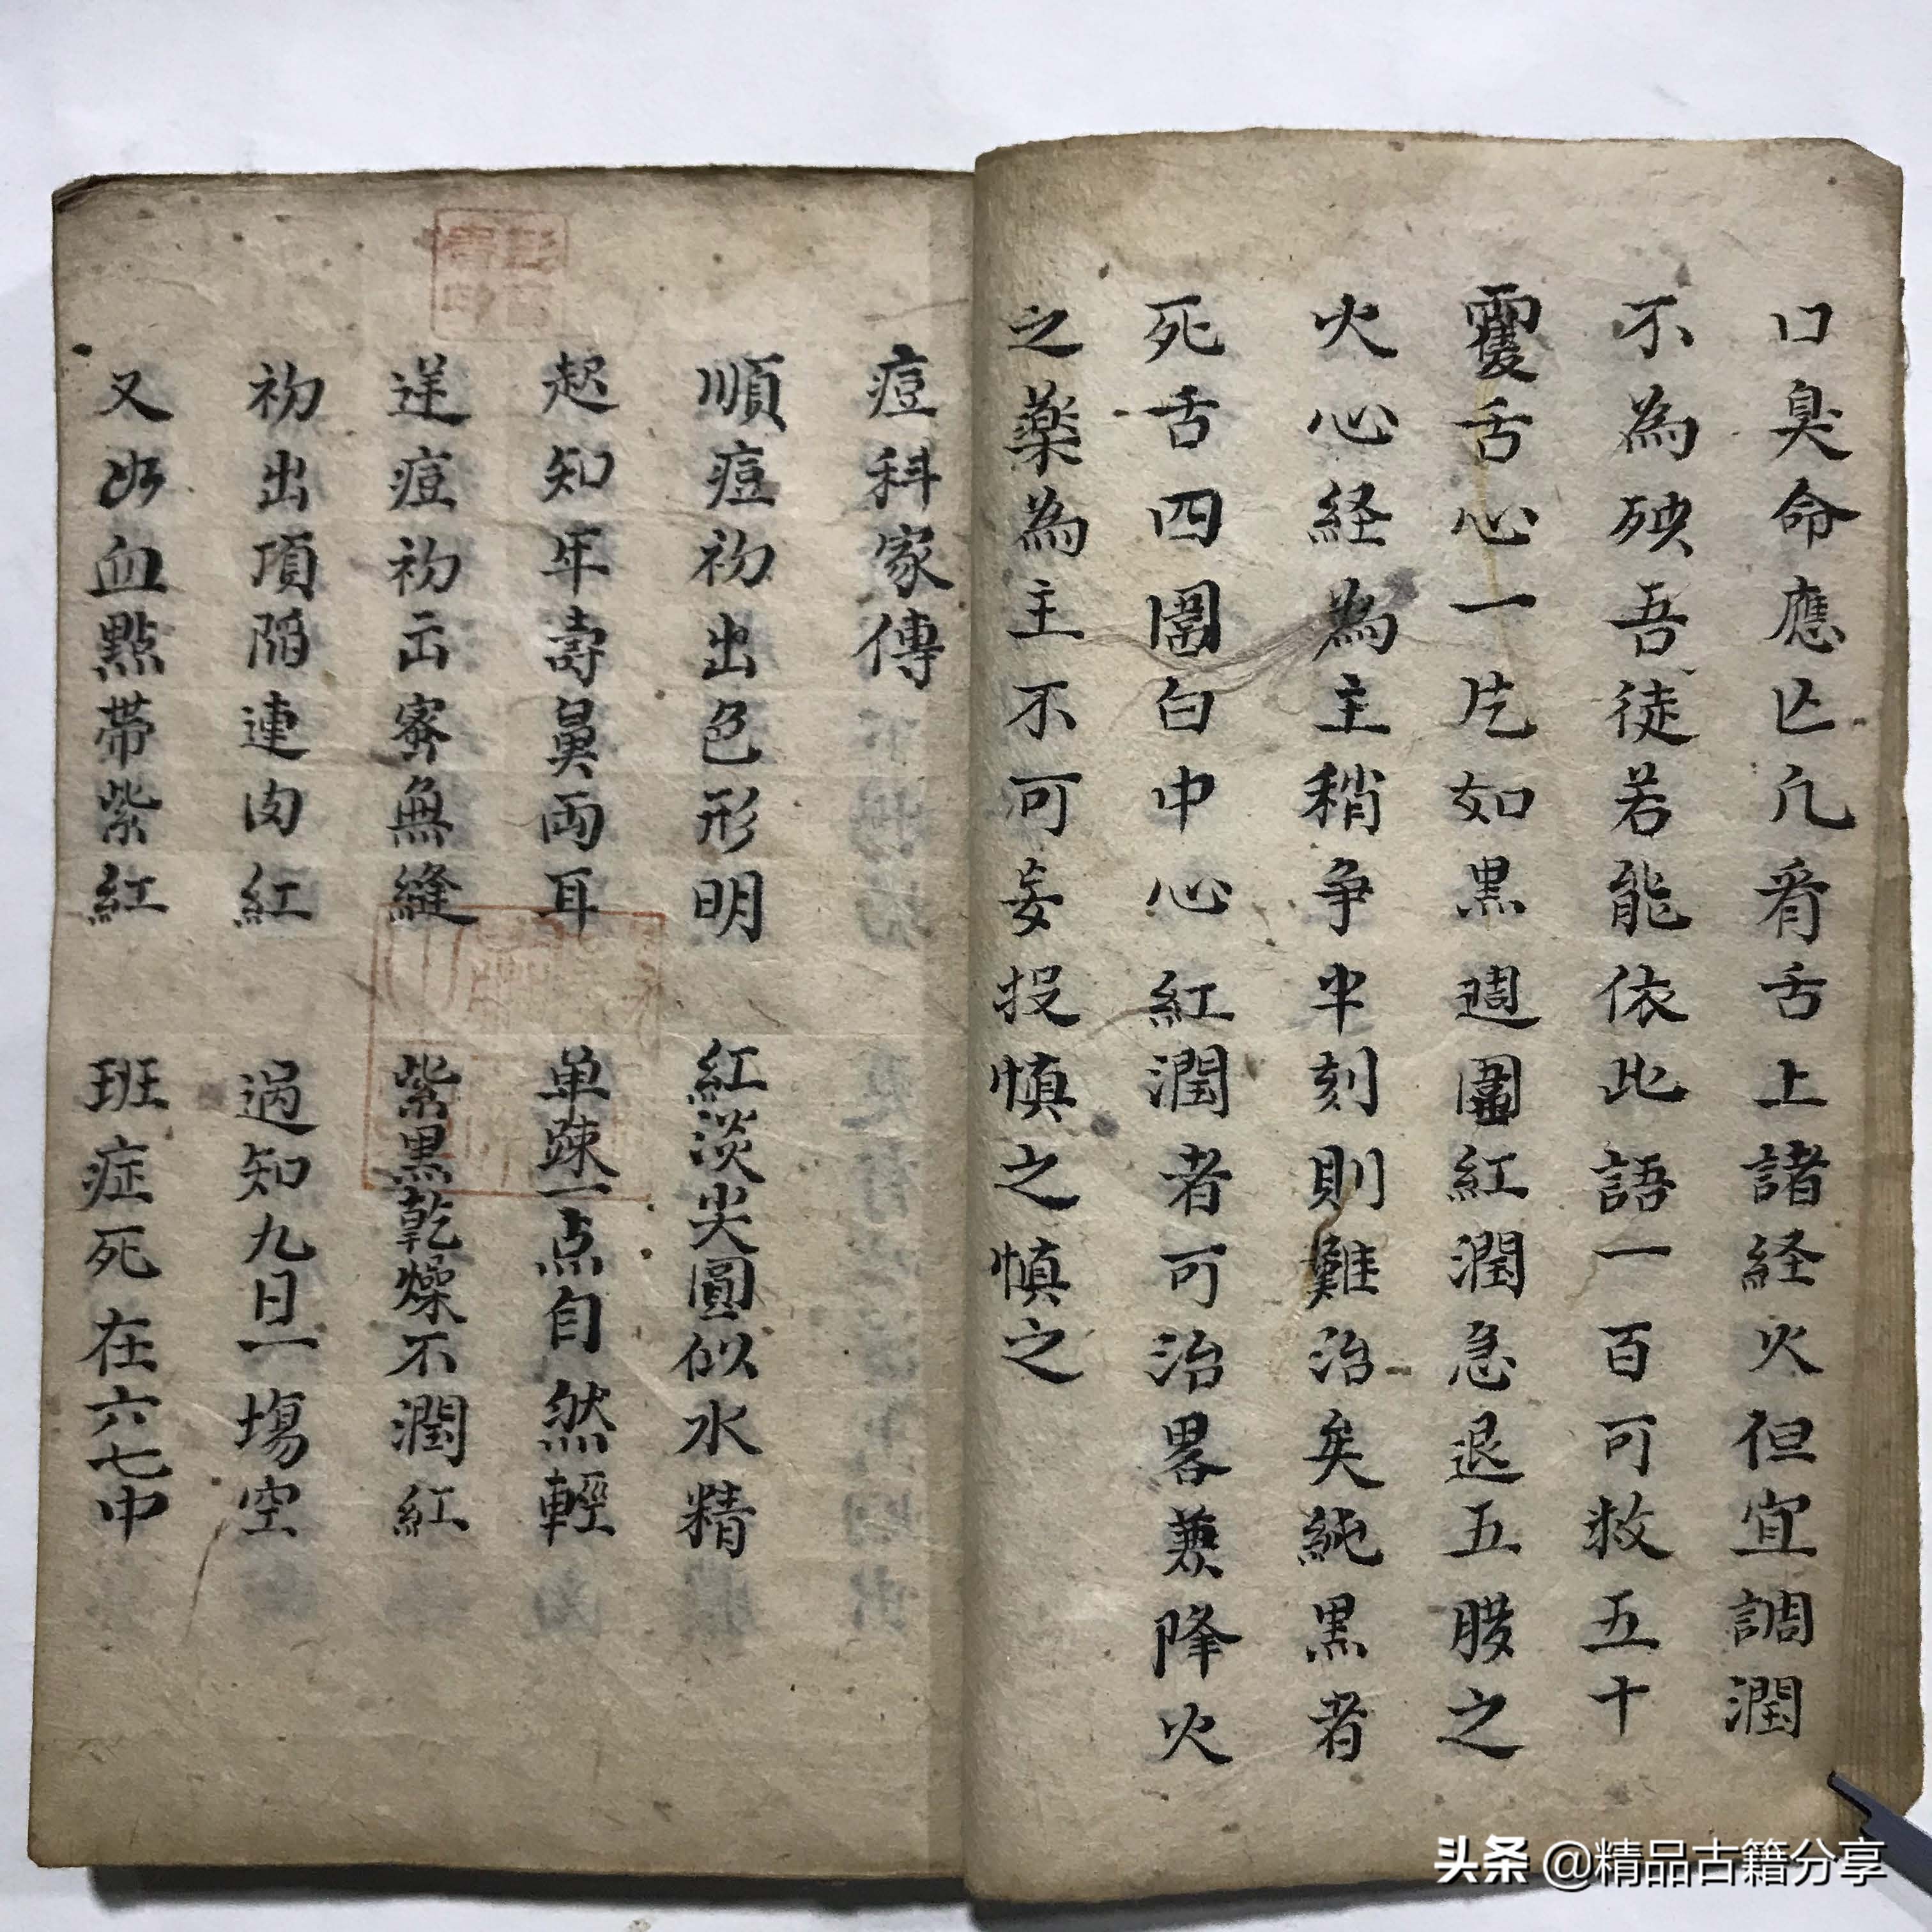 口臭命應亡凢看舌上諸経火但宜調潤
不為殃吾徒若能依此語一百可救五十
舌心一片如黒週圍紅潤急退五臟之
火心経為主稍争半刻則難治矣純黒者
死舌四圍白中心紅潤者可治畧兼降火
之薬為主不可妄投慎之慎之
痘科家傳
順痘初出色形明 紅淡尖圓似水精
起知年壽鼻両耳 单疎一点自然輕
逆痘初出密無縫 紫黒乾燥不潤紅
初出頂陷連肉紅 過知九日一塲空
又出血點帯紫紅 班症死在六七中
头条 @精品古籍分享